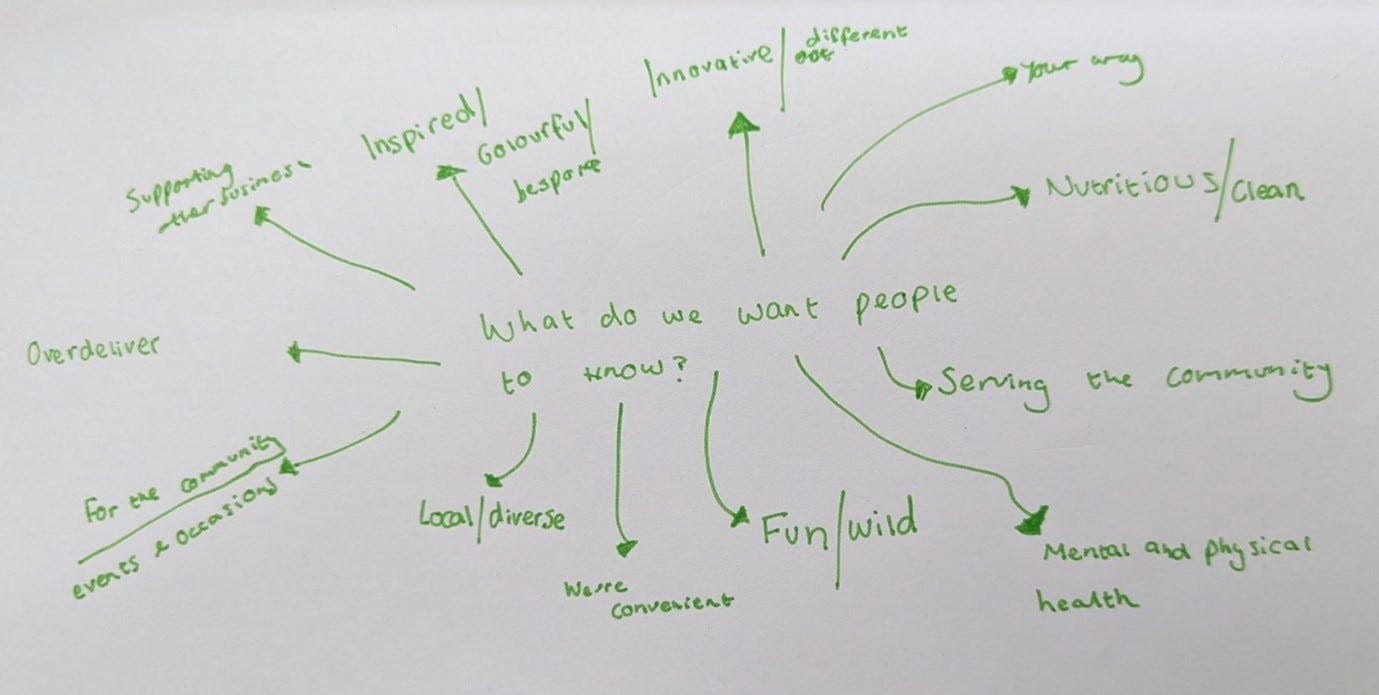 different
Innovative/
Your way
Inspired/
Colourful/
bespoke
Supporting
other business
Nutritious/clean
What do we want people
to know?
Overdeliver
Serving the community
For the community
events & occasions
Local/diverse
Fun/wild
We're
convenient
Mental and physical
health